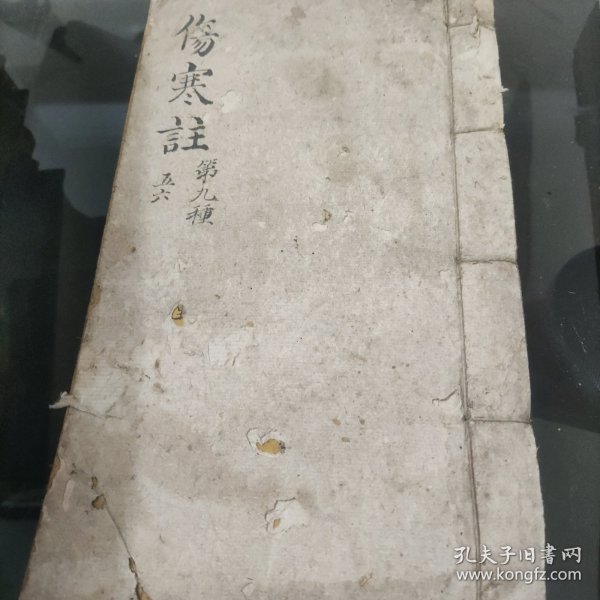 傷寒註
第九種
五六
孔夫子旧書网
www.kongfz.com